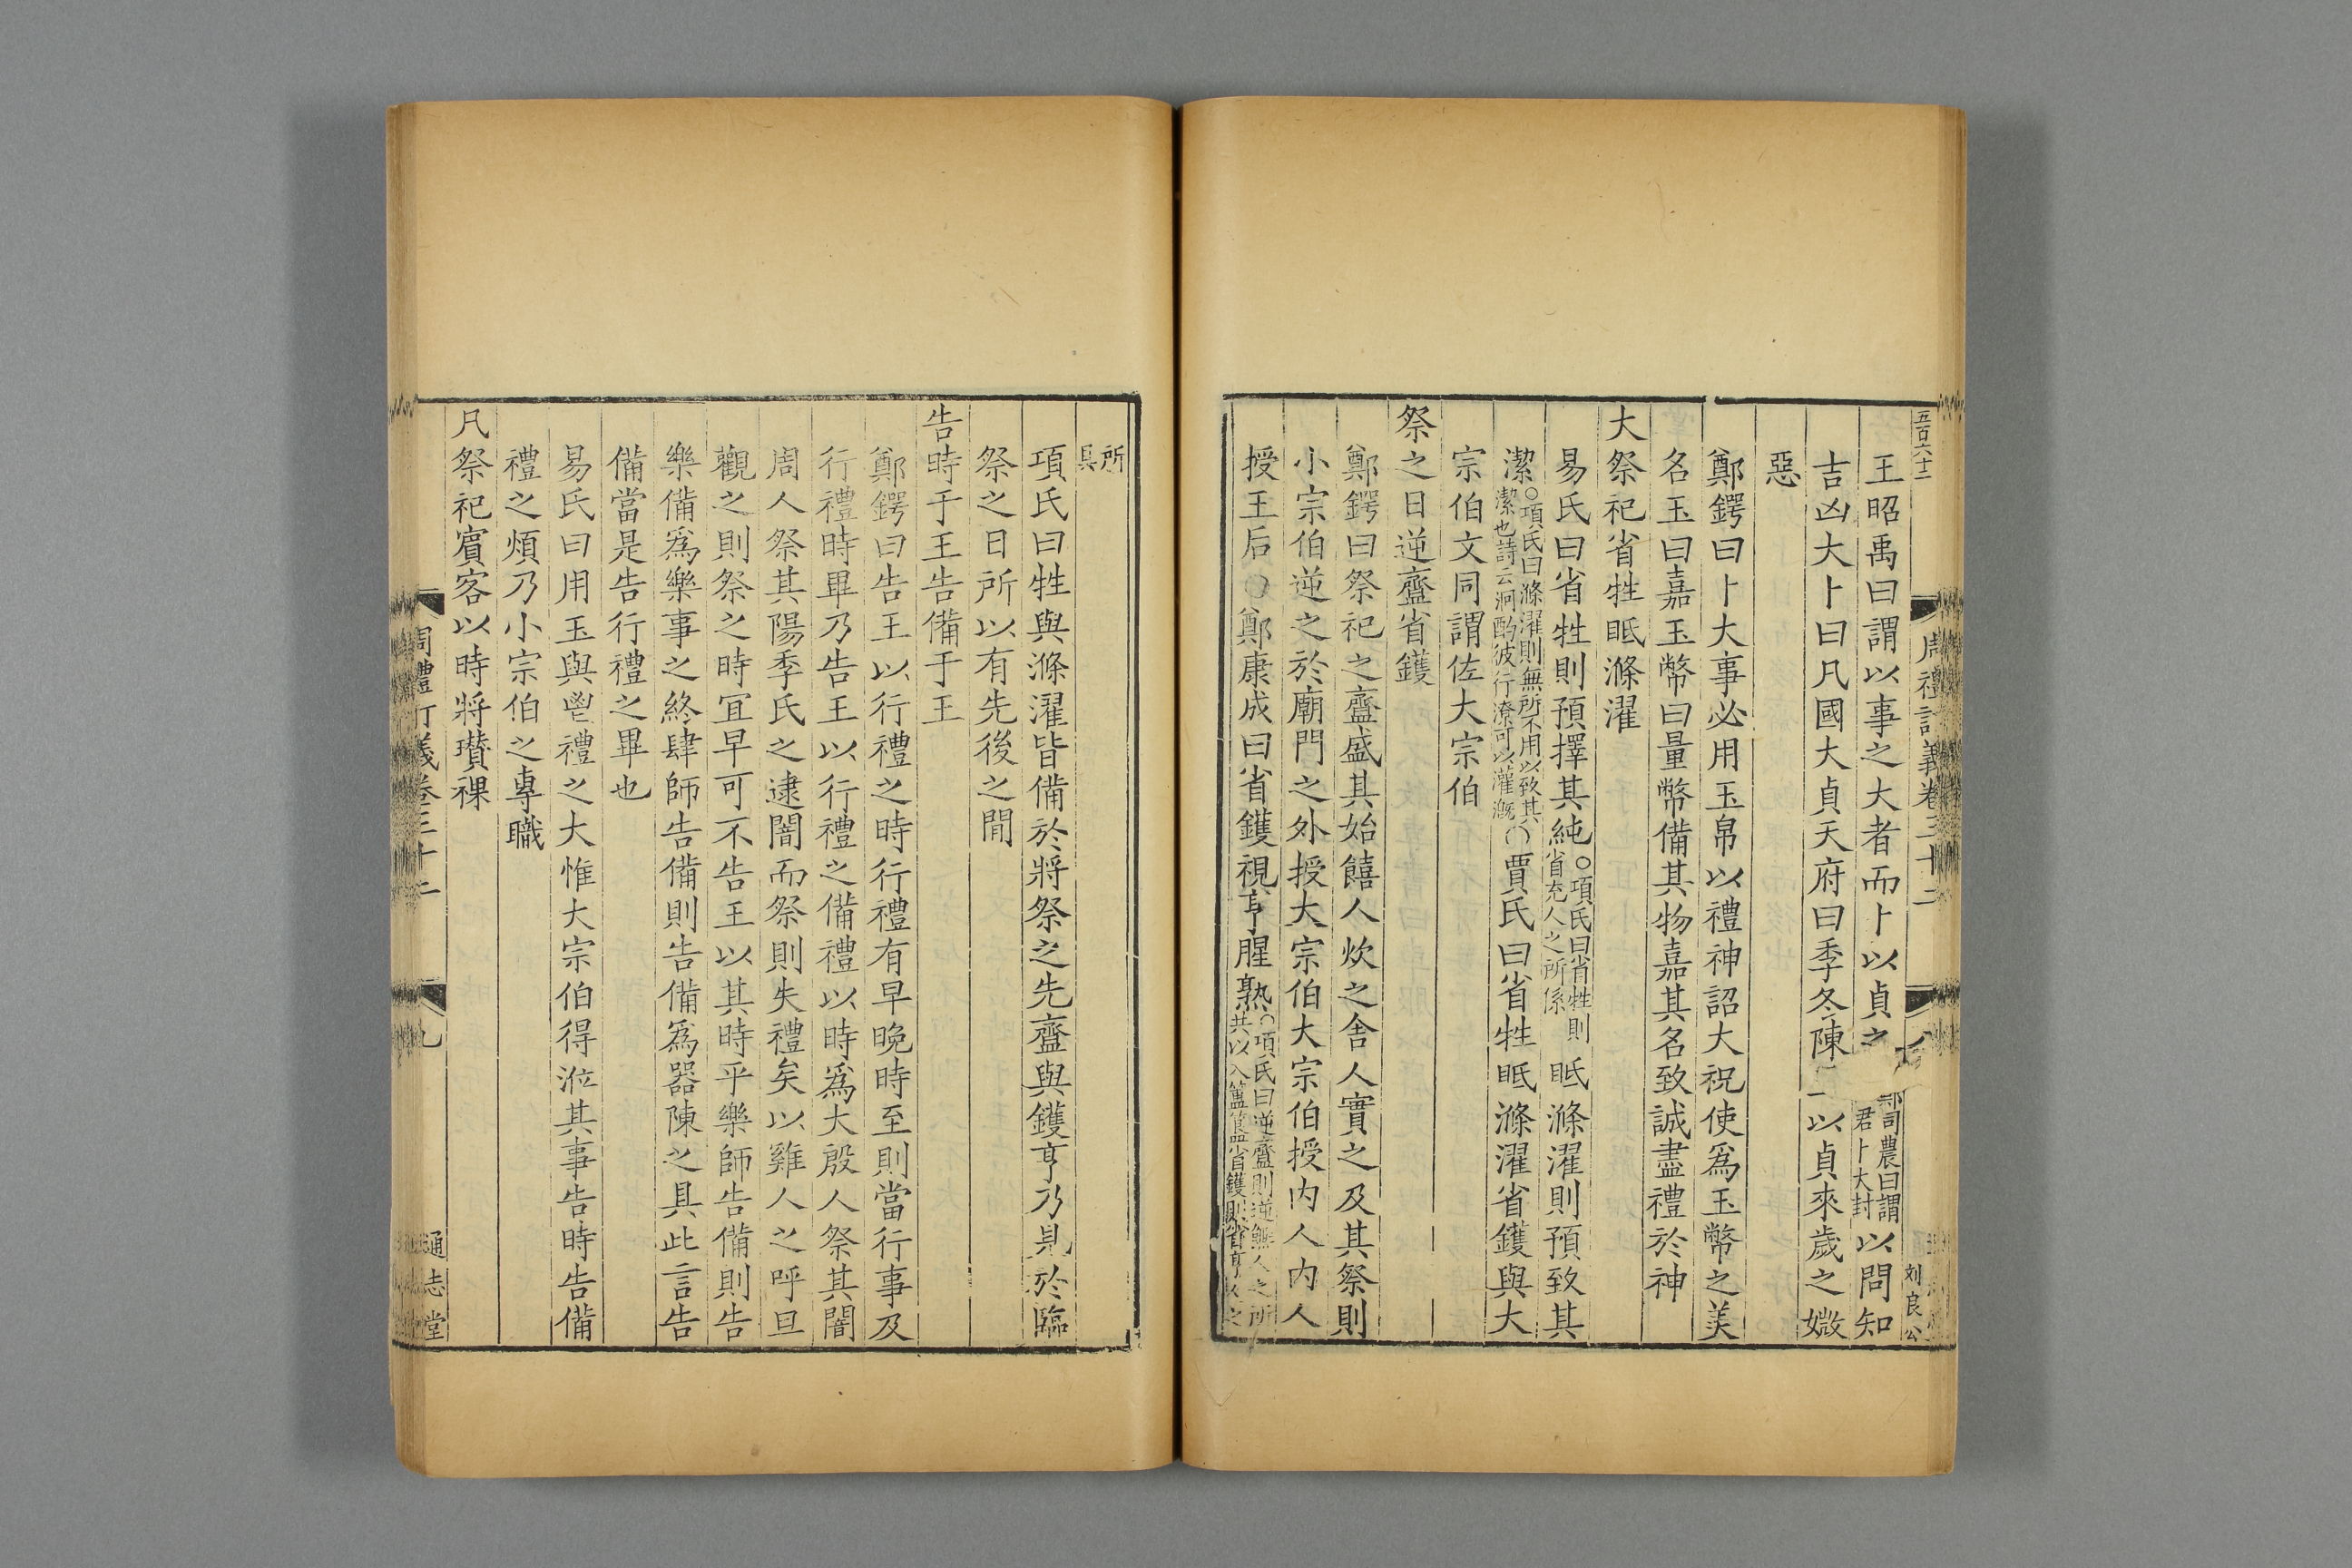 五百六十二
周禮訂義卷三十二
刘良公
王昭禹曰謂以事之大者而卜以貞之
司農曰謂
君卜大封
以問知
吉凶大卜曰凡國大貞天府曰季冬陳
以貞來歲之媺
惡
鄭鍔曰卜大事必用玉帛以禮神詔大祝使爲玉幣之美
名玉曰嘉玉幣曰量幣備其物嘉其名致誠盡禮於神
大祭祀省牲眡滌濯
易氏曰省牲則預擇其純
○項氏曰省牲則
省充人之所係
眡滌濯則預致其
潔
○項氏曰滌濯則無所不用以致其
潔也詩云泂酌彼行潦可以濯漑
○賈氏曰省牲眡滌濯省鑊與大
宗伯文同謂佐大宗伯
祭之日逆齍省鑊
鄭鍔曰祭祀之齍盛其始饎人炊之舍人實之及其祭則
小宗伯逆之於廟門之外授大宗伯大宗伯授内人内人
授王后○鄭康成曰省鑊視亨腥熟
○項氏曰逆齍則逆饎人之所
共以入簠簋省鑊則省亨人之
所
具
項氏曰牲與滌濯皆備於將祭之先齍與鑊亨乃見於臨
祭之日所以有先後之間
告時于王告備于王
鄭鍔曰告王以行禮之時行禮有早晚時至則當行事及
行禮時畢乃告王以行禮之備禮以時爲大殷人祭其闇
周人祭其陽季氏之逮闇而祭則失禮矣以雞人之呼旦
觀之則祭之時宜早可不告王以其時乎樂師告備則告
樂備爲樂事之終肆師告備則告備爲器陳之具此言告
備當是告行禮之畢也
易氏曰用玉與鬯禮之大惟大宗伯得涖其事告時告備
禮之煩乃小宗伯之專職
凡祭祀賓客以時將瓚祼
周禮訂義卷三十二
九
通志堂